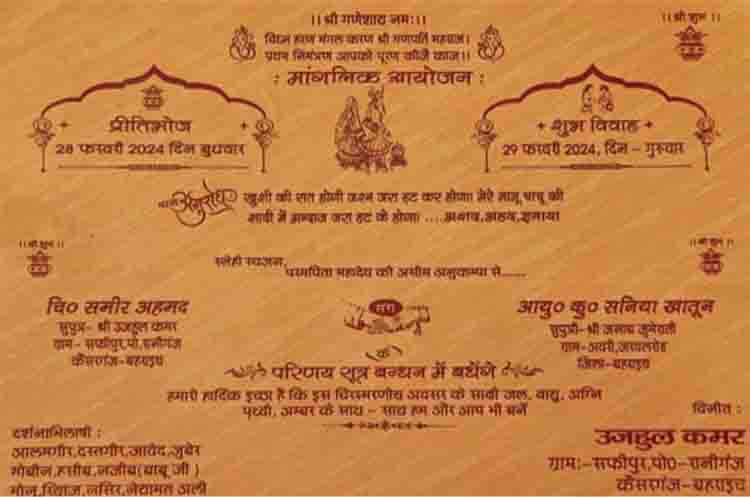 ।। श्री गणेशाय नमः।।
।। श्री शुभ ।।
विघ्न हरण मंगल करण श्री गणपति महाराज।
प्रथम निमंत्रण आपको पूरण कीजै काज।।
: मांगलिक आयोजन :
प्रीतिभोज
28 फरवरी 2024 दिन बुधवार
शुभ विवाह
29 फरवरी 2024, दिन - गुरुवार
बाल अनुरोध
खुशी की रात होगी जश्न जरा हट कर होगा। मेरे मामू,चाचू की
शादी में अन्दाज जरा हट के होगा। ....अयाब,अहद,इनाया
।। श्री शुभ ।।
।। श्री शुभ ।।
स्नेही स्वजन,
परमपिता महादेव की असीम अनुकम्पा से.....
चि० समीर अहमद
सुपुत्र- श्री उजहुल कमर
ग्राम- सफीपुर,पो.रानीगंज
कैसरगंज-बहराइच
आयु० कु० सनिया खातून
सुपुत्री-श्री जनाब जुमेराती
ग्राम-अवरी,जरवलरोड
जिला-बहराइच
के
परिणय सूत्र बन्धन में बधेंगे
हमारी हार्दिक इच्छा है कि इस चिरस्मरणीय अवसर के साक्षी जल, वायु, अग्नि
पृथ्वी, अम्बर के साथ - साथ हम और आप भी बनें
विनीत :
उजहुल कमर
ग्रामः-सफीपुर,पो0-रानीगंज
कैसरगंज-बहराइच
दर्शनाभिलाषी :
आलमगीर,दस्तगीर,जावेद,जुबेर
मोबीन,हसीब,नजीब(बाबू जी )